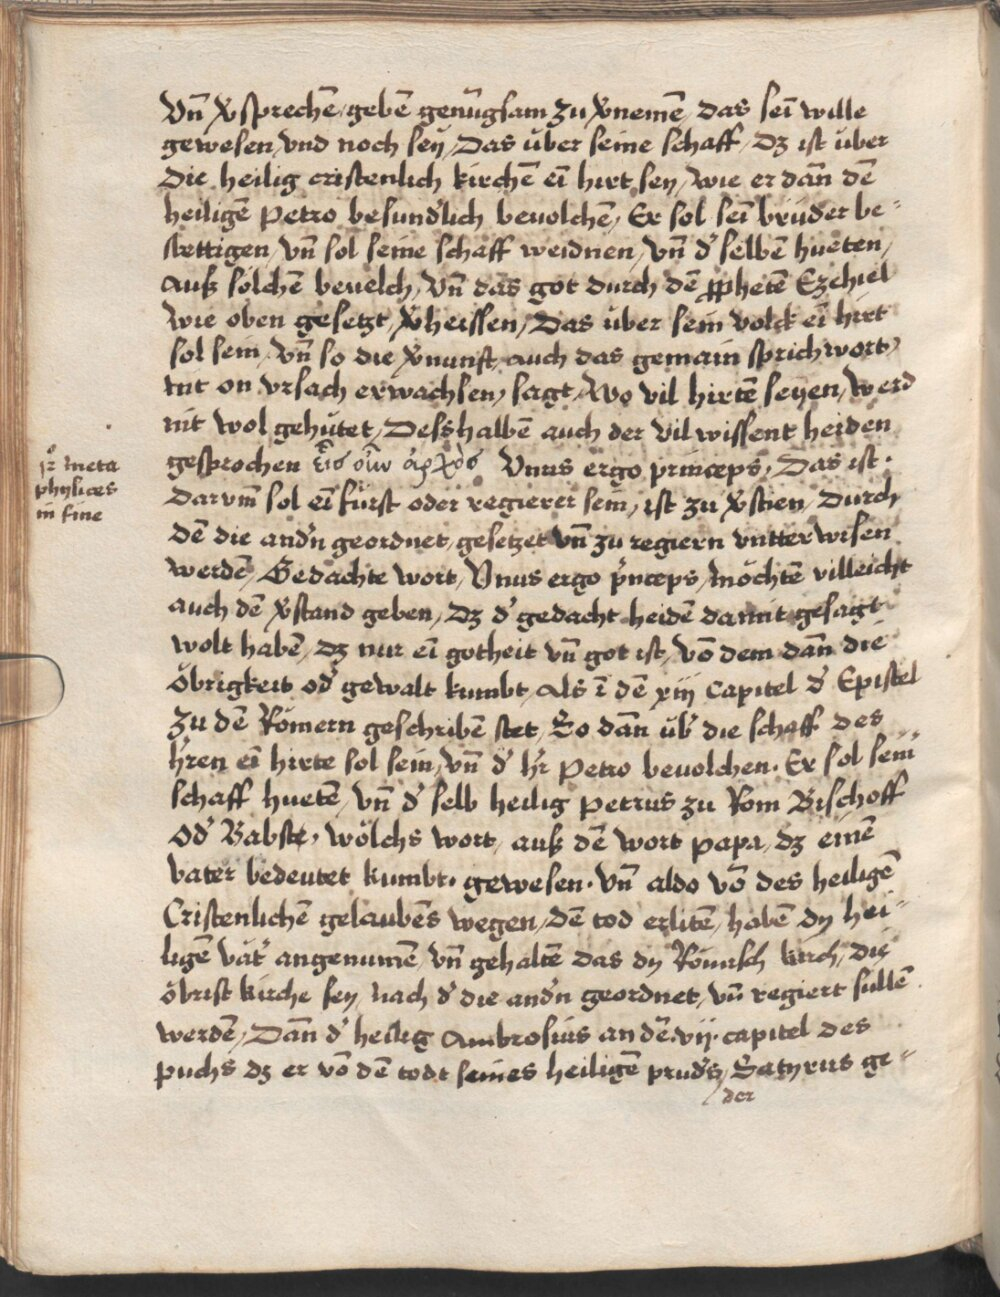 Vn̄ v̄sprechē, geben̄ genu̇gsam zu v̄nemē, das seī wille
gewesen, vnd noch seÿ, Das u̇ber seine schaff, dz ist u̇ber
die heilig cristenlich kirchē eī hirt sey, wie er dān dē
heiligē Petro besund'lich beuolchē, Er sol seī brüder be-
stettigen, vn̄ sol seine schaff weidnen, vn̄ d' selbē hueten,
auß sölchē beuelch, Vn̄ das got durch dē ꝓphetē Ezchiel
wie oben gesetzt, v̄heissen, Das u̇ber sein volck eī hirt
sol sein, Vn̄ so die v̄nunft, auch das gemain sprichwort,
nit on vrsach erwachsen, sagt, Wo vil hirtē seyen, werd
nit wol gehu̇tet, Desshalbē auch der vil wissent heiden
gesprochen εἷσ οὖν ἀρχὸσ Vnus ergo princeps, Das ist.
darum̄ sol eī fürst oder regierer sein, ist zu v̄stien, Durch
dē die and'n geordnet, gesetzet vn̄ zu regiern vntterwisen
werdē, Gedachte wort, Vnus ergo p̄nceps, möchtē villeicht
auch dē v̄stand geben, dz d' gedacht heidē damit gesagt
wolt habē, dz nur eī gotheit vn̄ got ist, võ dem dān die
öbrigkeit od' gewalt kumbt, als ī dē xiij capitel d' Epistel
zu dē Römern geschribē stet, So dān u̇b' die schaff des
h̄ren eī hirte sol sein, vn̄ d' h̄r Petro beuolchen. Er sol sein
schaff huetē, vn̄ d' selb heilig Petrus zu Rom Bischoff
od' Babste, wölchs wort, auß dē wort papa, dz einē
vater bedeutet kumbt. gewesen. Vn̄ aldo võ des heiligē
Cristenlichē gelaubēs wegen, dē tod erlitē, habē dy hei-
ligē vät' angenumē, vn̄ gehaltē das dy Römisch kirch, dy
öbrist kirche sey, nach d' die and'n geordnet, vn̄ regiert sullē
werdē, Dān d' heilig Ambrosius an dē. vij. capitel des
puchs dz er võ dē todt seines heiligē prud's, Satyrus ge-
der
meta
phylices
in fine